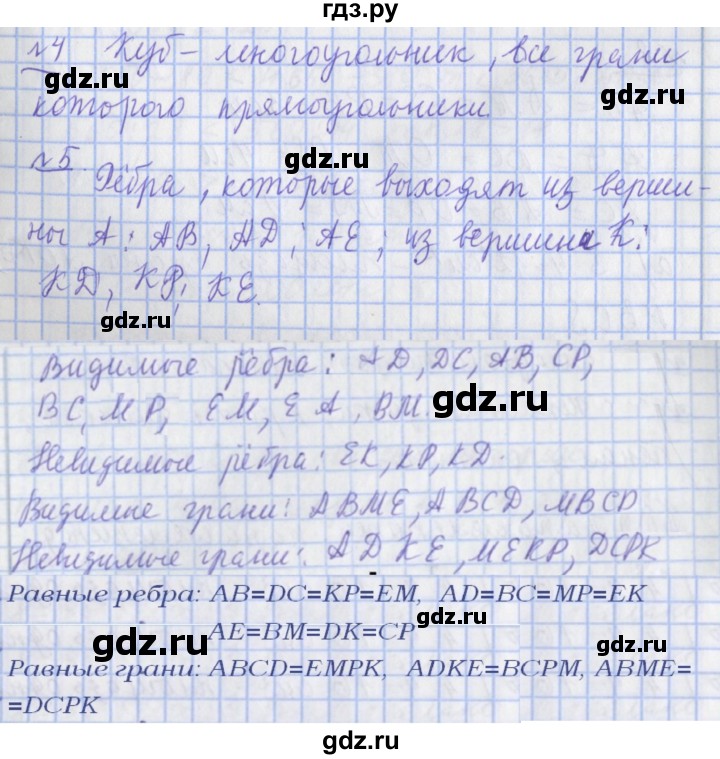 гдз.ру
№4 Куб – многоугольник, все грани
gdz.ru
gdz.ru
которого прямоугольники.
gdz.ru
№5
Рёбра, которые выходят из верши-
ны А: АВ, АD, АЕ; из вершина К:
gdz.ru
КD, КР, КЕ.
gdz.ru
Видимые рёбра: АD, DC, АВ, СР,
ВС, МР, ЕМ, ЕА, ВМ
gdz.ru
Невидимые рёбра: ЕК, КР, КD.
gdz.ru
Видимые грани: АВМЕ, АВСD, МВСР
Невидимые грани: АDКЕ, МЕКР, DСРК
Равные ребра: AB=DC=KP=EM, AD=BC=MP=EK
gdz.ru
AE=BM=DK=CP
gdz.ru
gdz.ru
Равные грани: ABCD=EMPK, ADKE=BCPM, ABME=
=DCPK
gdz.ru
gdz.ru
гдз.ру